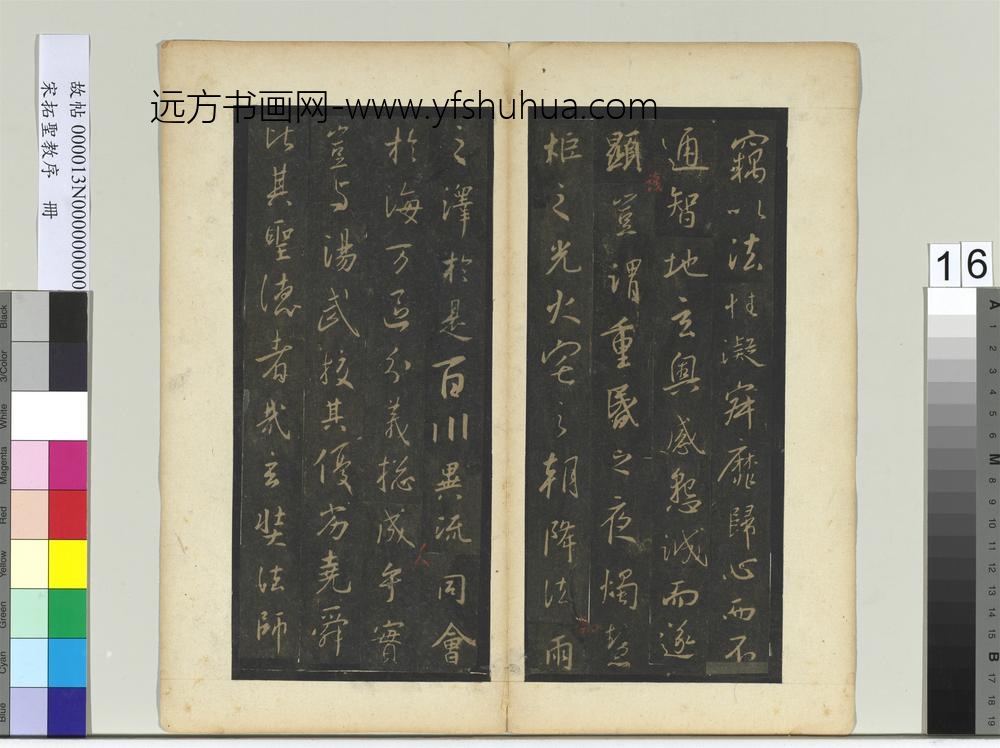 远方书画网-www.yfshuhua.com
竊以法性凝寂靡歸心而不
通智地玄奧感懇誠而遂
顯豈謂重昏之夜燭慧
炬之光火宅之朝降法雨
之澤於是百川異流同會
於海万區分義揔成乎實
豈与湯武校其優劣堯舜
比其聖德者哉玄奘法師
故帖 000013N000000000
宋拓聖教序 冊
16
Black
3/Color
White
Magenta
Red
Yellow
Green
Cyan
Blue
A
1
2
3
4
5
6
M
8
9
10
11
12
13
14
15
B
17
18
19